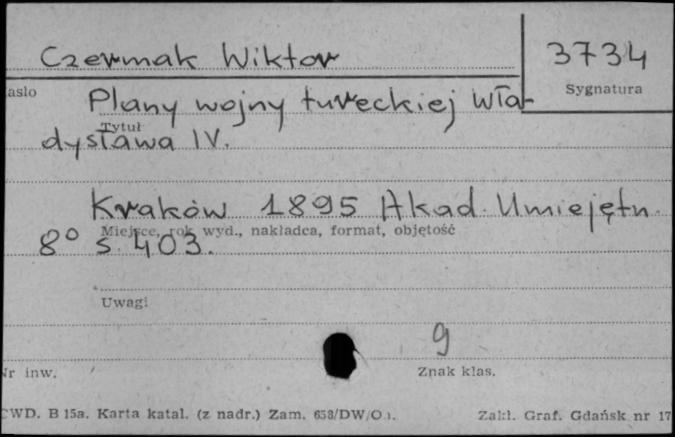 Czermak Wiktor
3734
asło
Sygnatura
Plany wojny tureckiej Wła-
Tytuł
dysława IV.
Kraków 1895 Akad. Umiejętn.
Miejsce, rok wyd., nakładca, format, objętość
8° s. 403.
Uwagi
9
Nr inw.
Znak klas.
CWD. B 15a. Karta katal. (z nadr.) Zam.
Zakł. Graf. Gdańsk nr 17